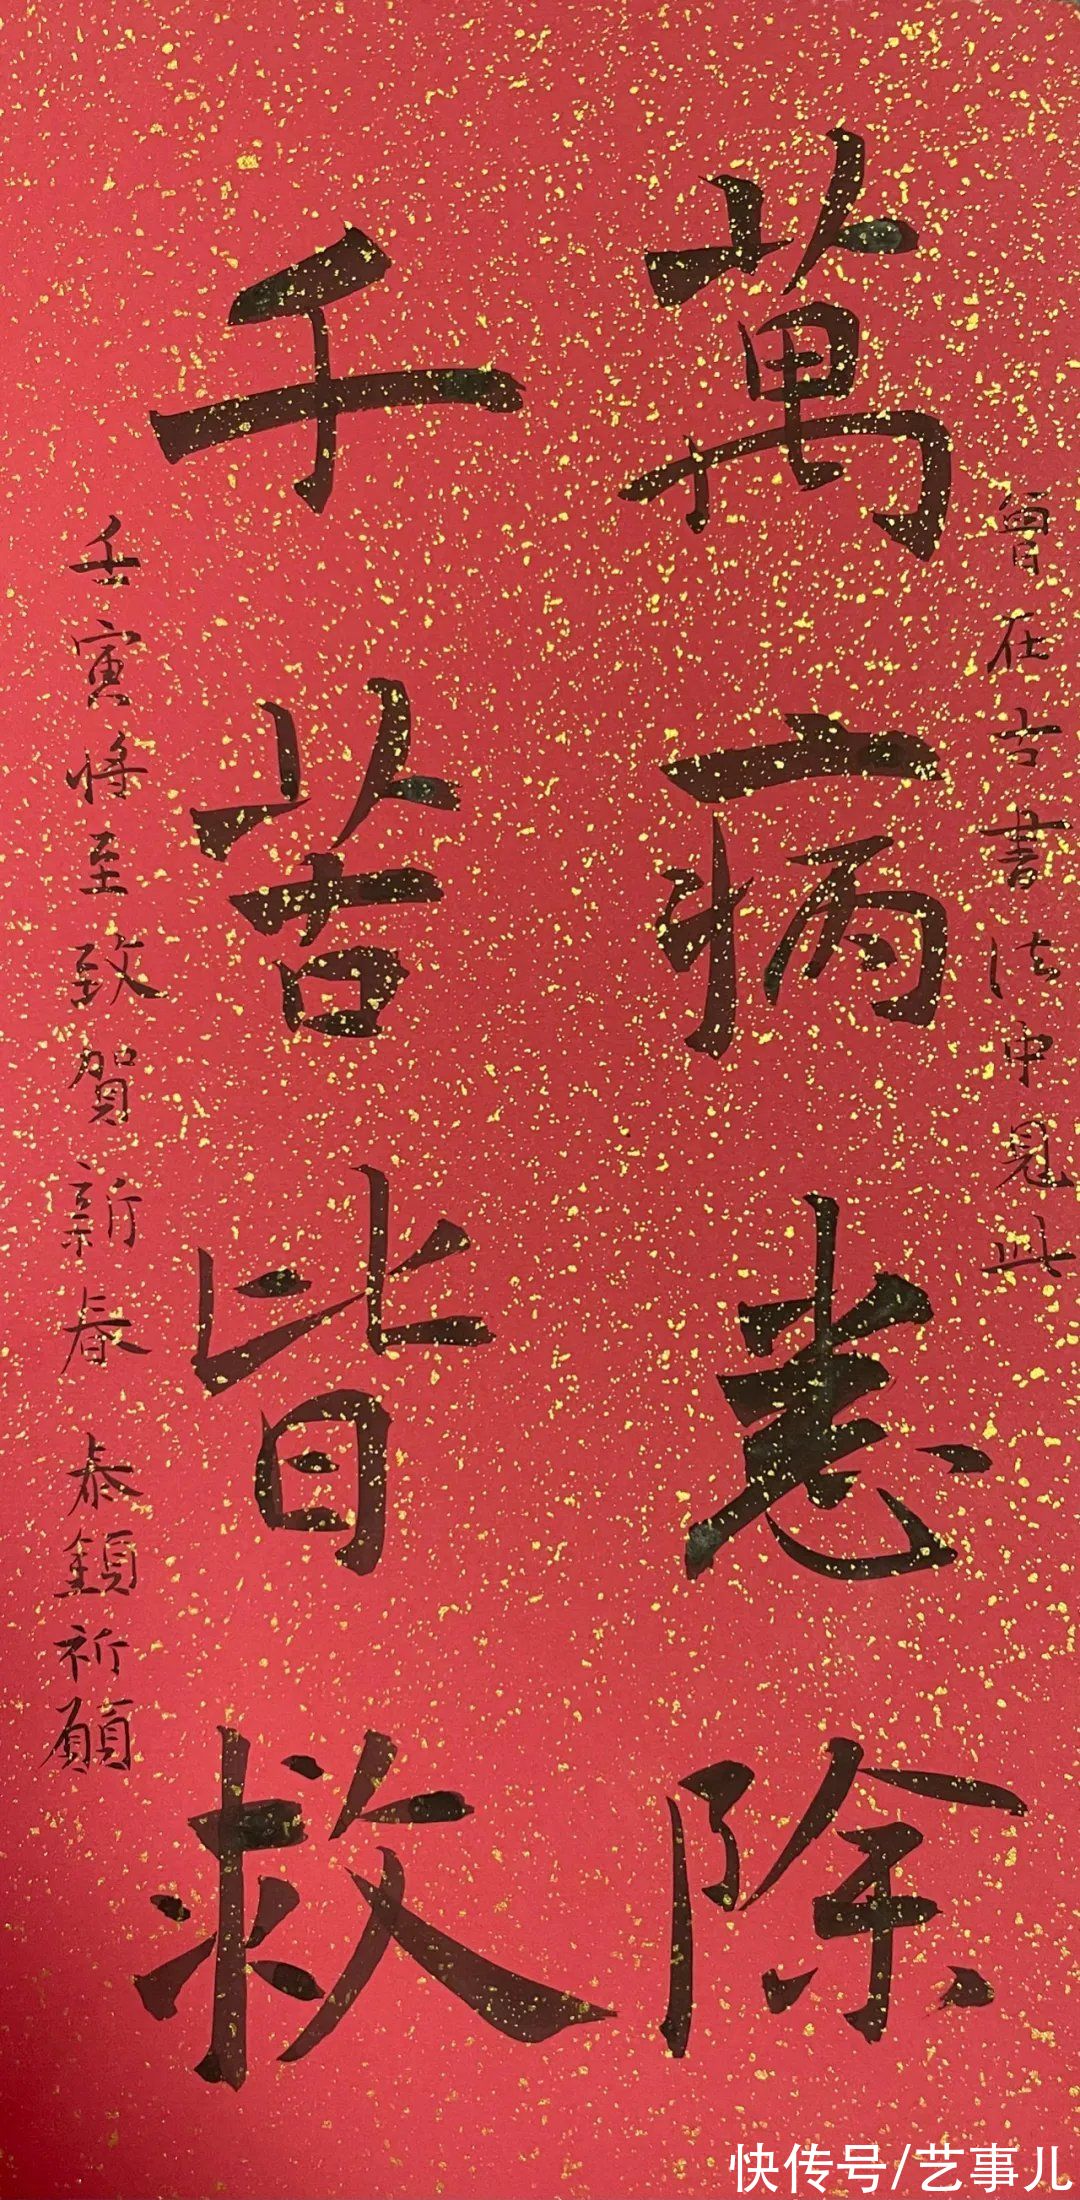 曾在古書法中見此
萬病悉除
千苦皆救
壬寅将至致賀新春 泰鎮祈願
快传号/艺事儿